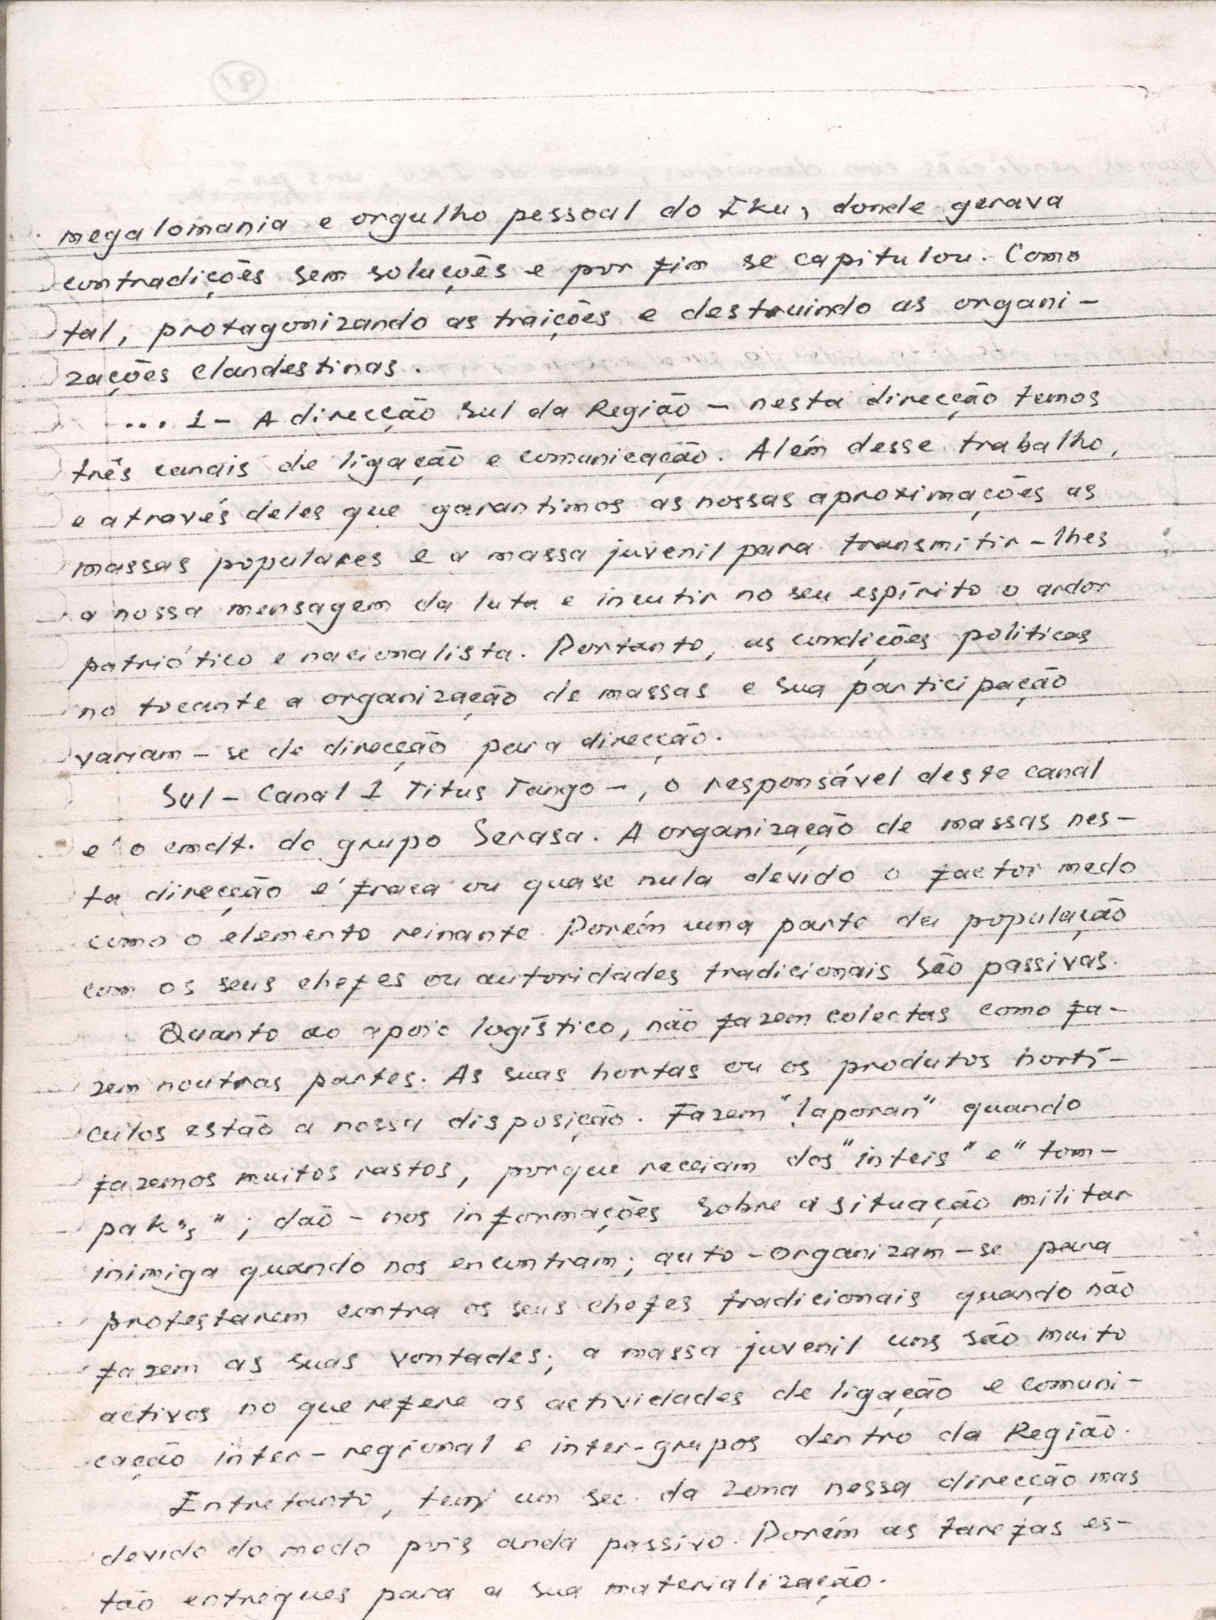 megalomania e orgulho pessoal do Eku, donde gerava
contradições sem soluções e por fim se capitulou. Como
tal, protagonizando as traições e destruindo as organi-
zações clandestinas.
... 1 - A direcção Sul da Região - nesta direcção temos
três canais de ligação e comunicação. Além desse trabalho,
e através deles que garantimos as nossas aproximações as
massas populares e a massa juvenil para transmitir-lhes
a nossa mensagem da luta e incutir no seu espírito o ardor
patriótico e nacionalista. Portanto, as condições politicas
no tocante a organização de massas e sua participação
variam-se de direcção para direcção.
Sul - Canal 1 Titus Tango -, o responsável deste canal
e' o cmdt. do grupo Serasa. A organização de massas nes-
ta direcção e' fraca ou quase nula devido o factor medo
como o elemento reinante. Porém uma parte da população
com os seus chefes ou autoridades tradicionais são passivas.
Quanto ao apoio logístico, não fazem colectas como fa-
zem noutras partes. As suas hortas ou os produtos hortí-
culos estão a nossa disposição. Fazem "laporan" quando
fazemos muitos rastos, porque receiam dos "inteis" e "tom-
pak's"; daõ-nos informações sobre a situação militar
inimiga quando nos encontram; auto-organizam-se para
protestarem contra os seus chefes tradicionais quando não
fazem as suas vontades; a massa juvenil uns são muito
activos no que refere as actividades de ligação e comuni-
cação inter-regional e inter-grupos dentro da Região.
Entretanto, tem um sec. da zona nessa direcção mas
devido do medo pois anda passivo. Porém as tarefas es-
tão entregues para a sua materialização.